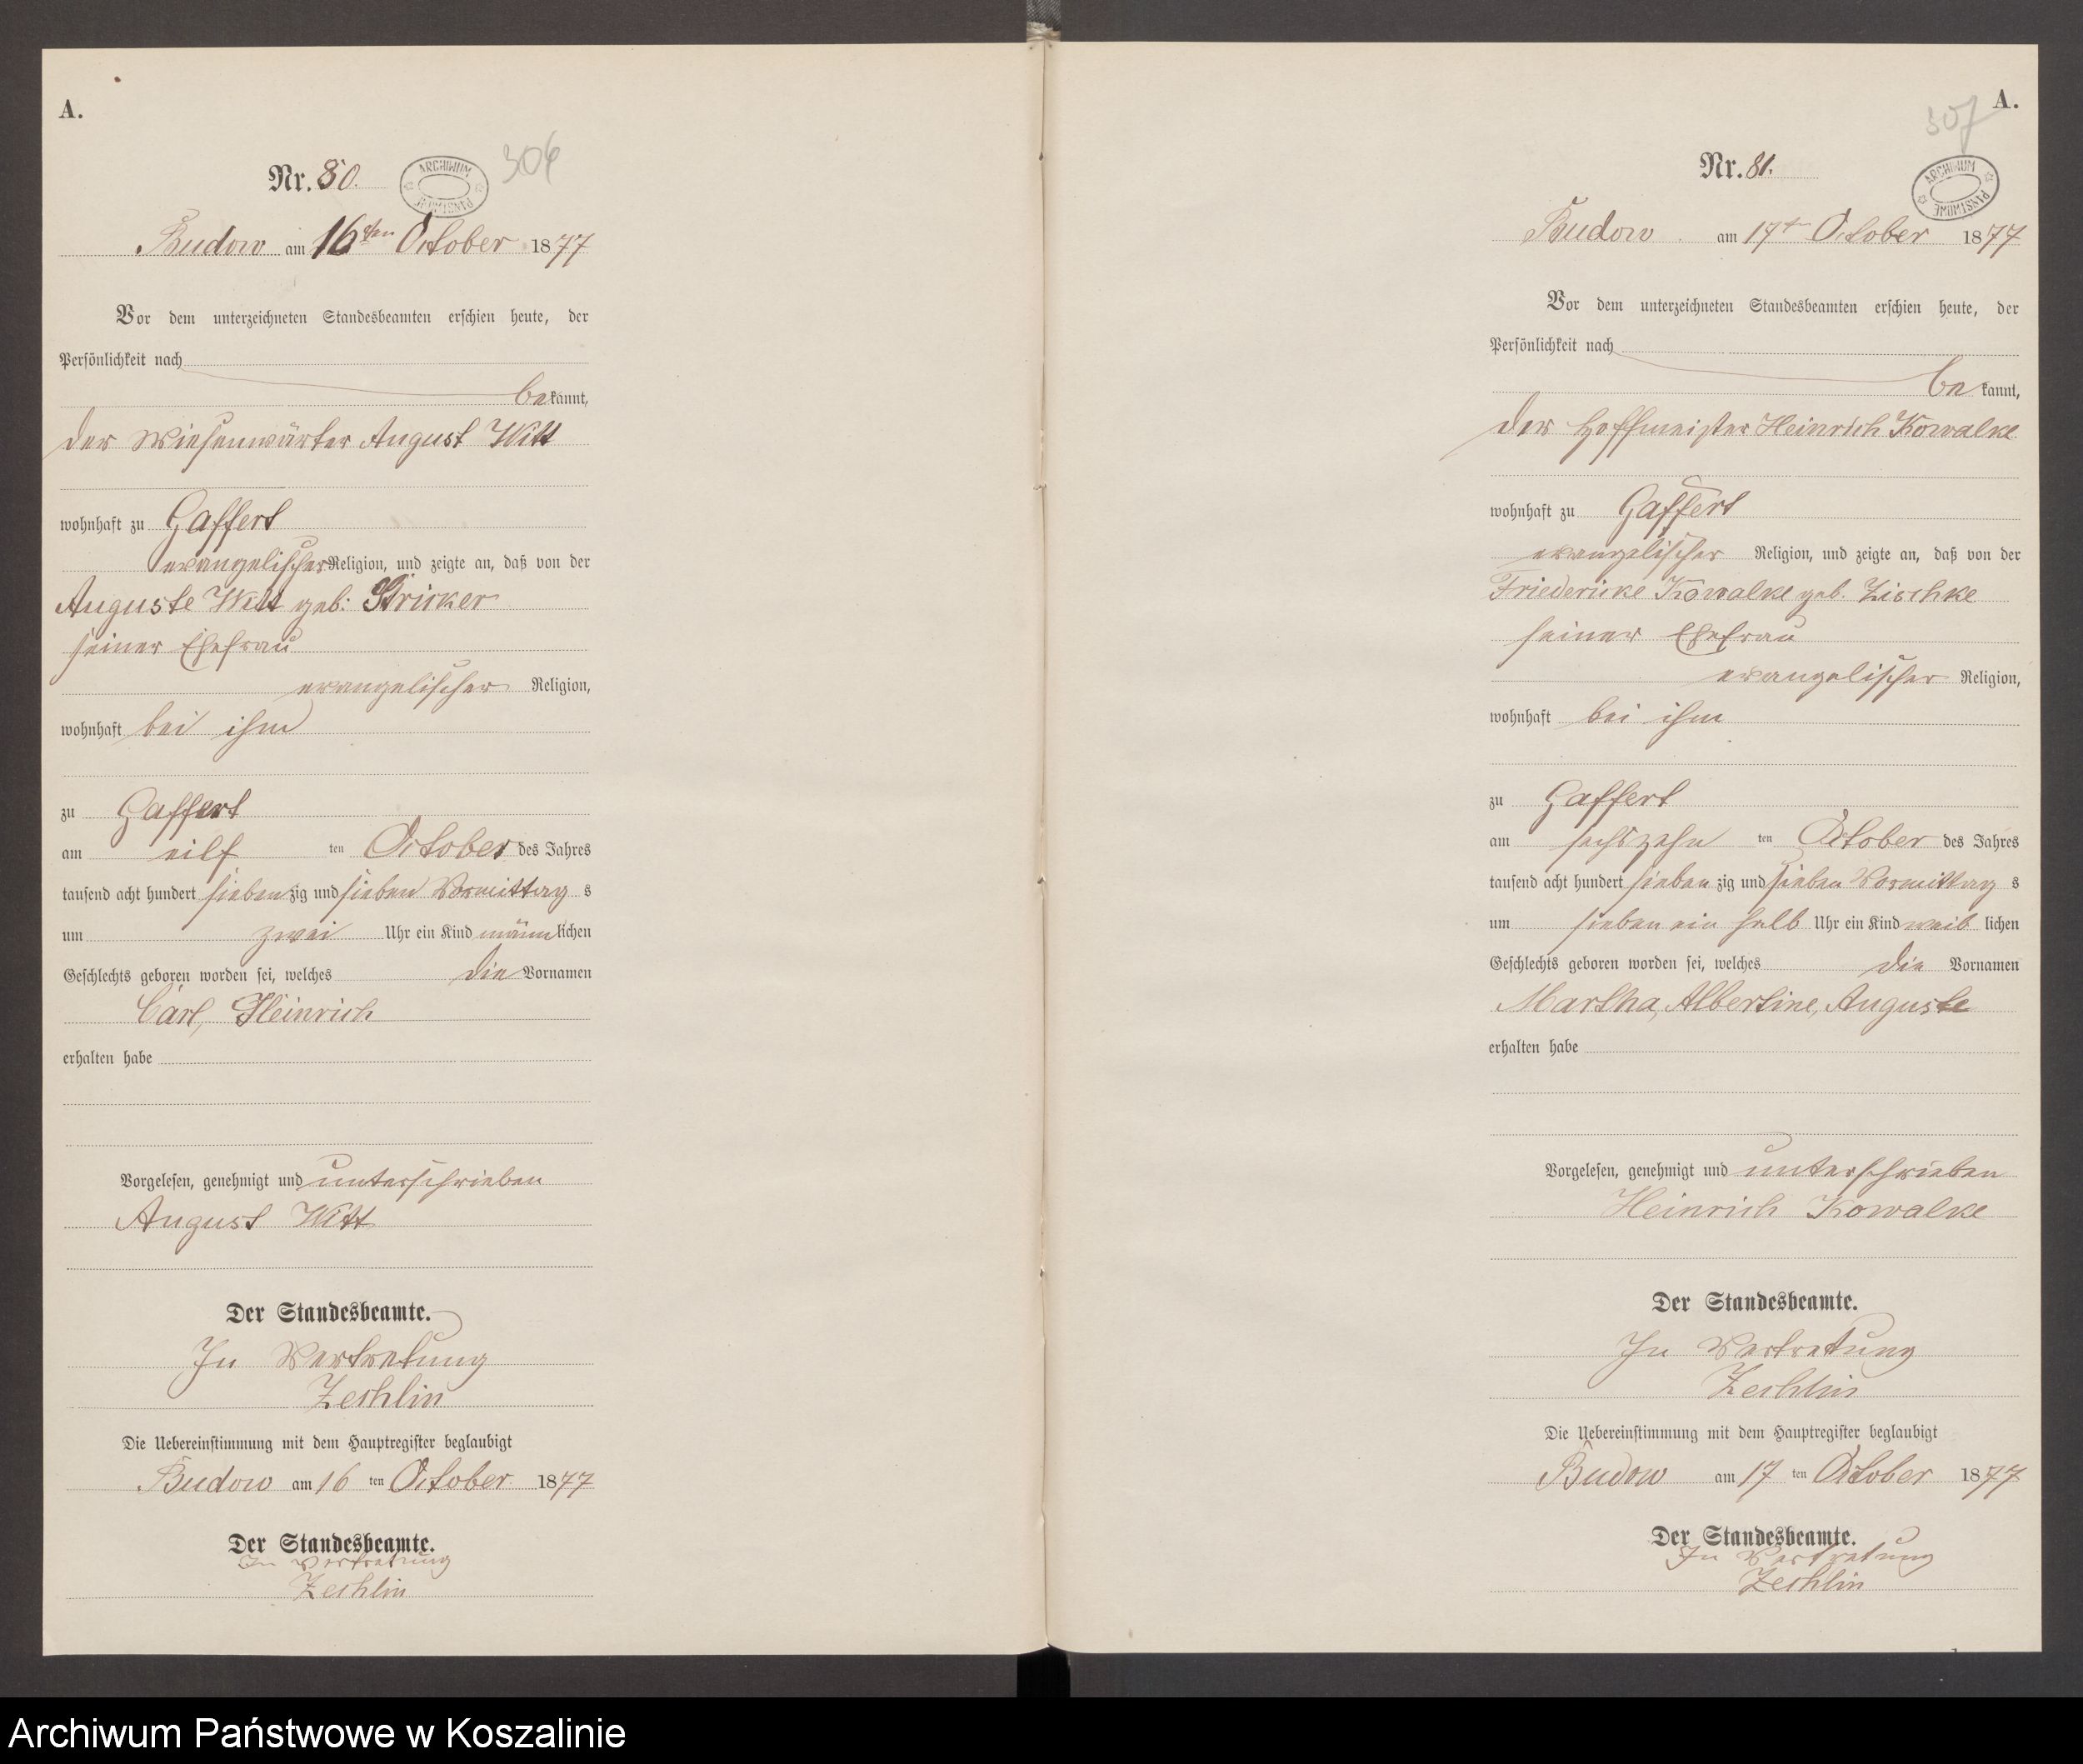 A.
Nr. 80.
ARCHIWUM PAŃSTWOWE
306
Budow am 16ten October 1877
Vor dem unterzeichneten Standesbeamten erschien heute, der
Persönlichkeit nach
bekannt,
der Wiesenwärter August Witt
wohnhaft zu Gaffert
evangelischer Religion, und zeigte an, daß von der
Auguste Witt geb: Stricker
seiner Ehefrau
evangelischer Religion,
wohnhaft bei ihm
zu Gaffert
am eilf ten October des Jahres
tausend acht hundert siebenzig und sieben Vormittags
um zwei Uhr ein Kind männlichen
Geschlechts geboren worden sei, welches die Vornamen
Carl, Heinrich
erhalten habe
Vorgelesen, genehmigt und unterschrieben
August Witt
Der Standesbeamte.
In Vertretung
Zechlin
Die Uebereinstimmung mit dem Hauptregister beglaubigt
Budow am 16 ten October 1877
Der Standesbeamte.
In Vertretung
Zechlin
A.
307
Nr. 81.
ARCHIWUM PAŃSTWOWE
Budow am 17t October 1877
Vor dem unterzeichneten Standesbeamten erschien heute, der
Persönlichkeit nach
bekannt,
der Hoffmeister Heinrich Kowalke
wohnhaft zu Gaffert
evangelischer Religion, und zeigte an, daß von der
Friedericke Kowalke geb. Zischke
seiner Ehefrau
evangelischer Religion,
wohnhaft bei ihm
zu Gaffert
am sechszehn ten October des Jahres
tausend acht hundert siebenzig und sieben Vormittags
um sieben ein halb Uhr ein Kind weiblichen
Geschlechts geboren worden sei, welches die Vornamen
Martha, Albertine, Auguste
erhalten habe
Vorgelesen, genehmigt und unterschrieben
Heinrich Kowalke
Der Standesbeamte.
In Vertretung
Zechlin
Die Uebereinstimmung mit dem Hauptregister beglaubigt
Budow am 17 ten October 1877
Der Standesbeamte.
In Vertretung
Zechlin
Archiwum Państwowe w Koszalinie